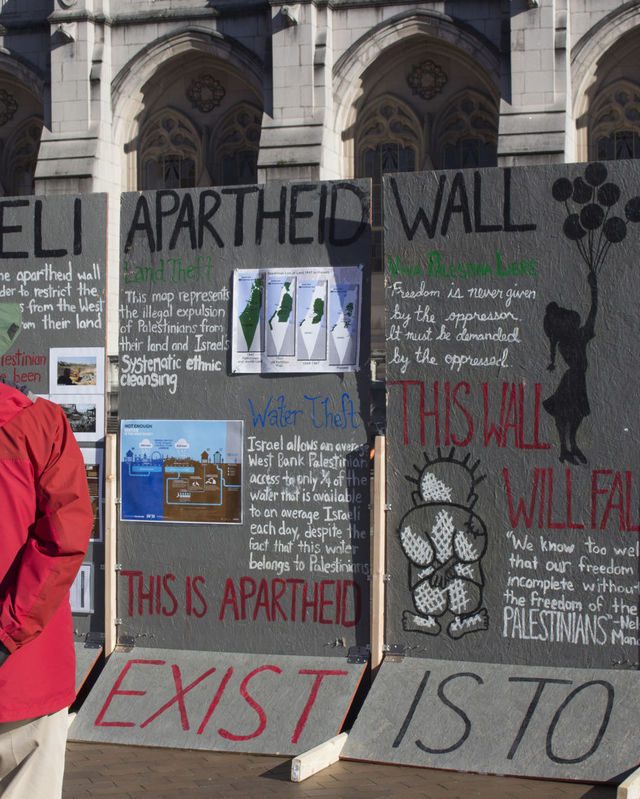 ELI APARTHEID WALL
apartheid wall
restrict the
from the West
their land
been
Land Theft
This map represents
the illegal expulsion
of Palestinians from
their land and Israel's
Systematic ethnic
cleansing
Water Theft
Israel allows an average
West Bank Palestinian
access to only ¼ of the
water that is available
to an average Israeli
each day, despite the
fact that this water
belongs to Palestinians
NOT ENOUGH
THIS IS APARTHEID
EXIST
"Freedom is never given
by the oppressor.
It must be demanded
by the oppressed.
THIS WALL
WILL FAL
"We know too we
that our freedom
incomplete withou
the freedom of the
PALESTINIANS" -Nel
Man
IS TO